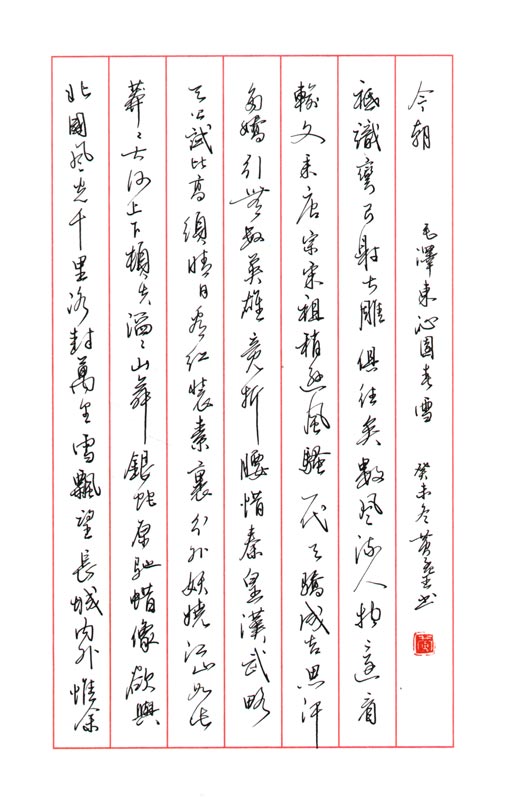 北國風光千里冰封萬里雪飄望長城內外惟余
莽々大河上下頓失滔々山舞銀蛇原馳蜡像欲與
天公試比高須晴日看紅裝素裹分外妖嬈江山如此
多嬌引無數英雄竞折腰惜秦皇漢武略
輸文采唐宗宋祖稍遜風騷一代天驕成吉思汗
祗識彎弓射大雕俱往矣數風流人物還看
今朝 毛澤東沁園春雪 癸未冬黃書